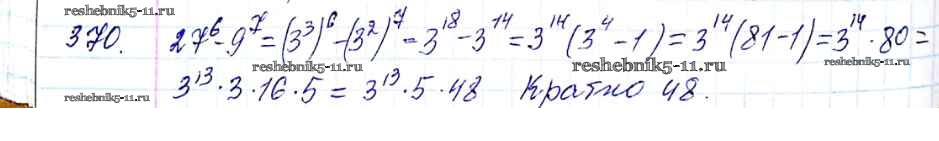 reshebnik5-11.ru
370. 27⁶ - 9⁷ = (3³)⁶ - (3²)⁷ = 3¹⁸ - 3¹⁴ = 3¹⁴(3⁴ - 1) = 3¹⁴(81 - 1) = 3¹⁴ · 80 =
reshebnik5-11.ru reshebnik5-11.ru reshebnik5-11.ru
reshebnik5-11.ru 3¹³ · 3 · 16 · 5 = 3¹³ · 5 · 48 Кратно 48. reshebnik5-11.ru